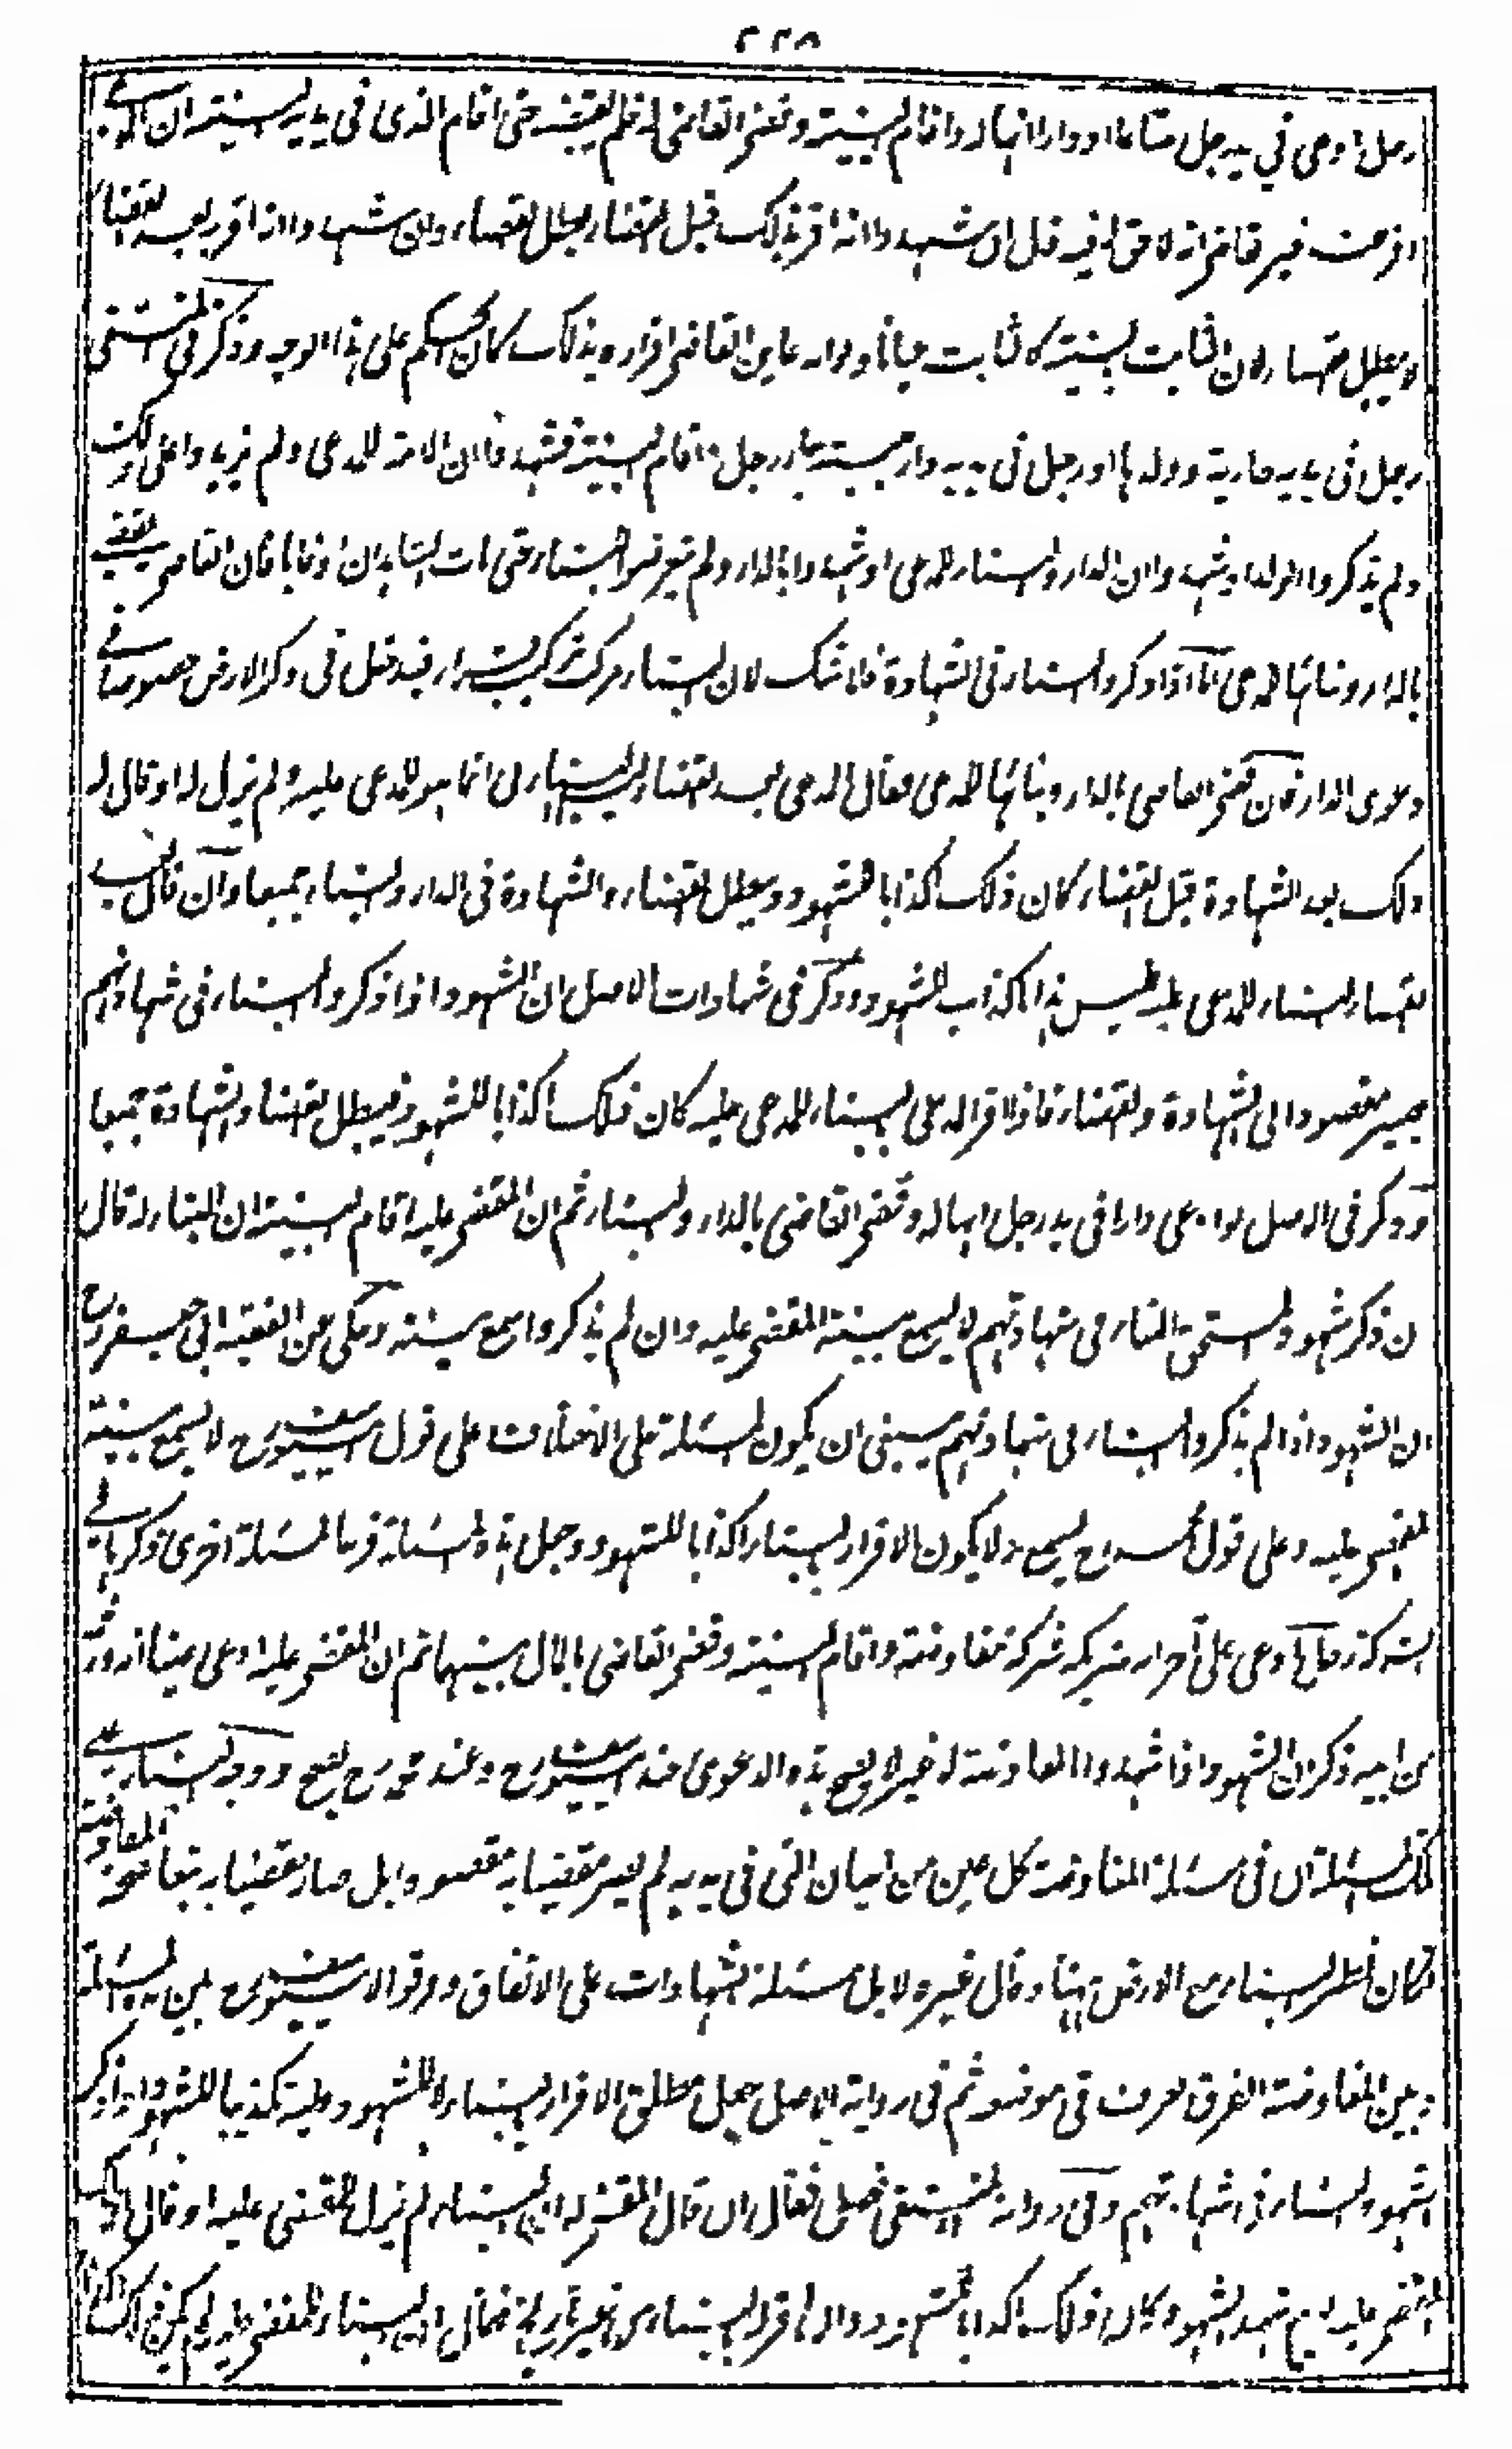 ٢٢٨
رجل ادعى في يد رجل متاعا او دارا انها له واقام البينة وقضى القاضي له فلم يقبضه حتى اقام الذي في يديه البينة ان المدعي
اقر عند غير قاض انه لا حق له فيه قال ان شهدوا انه اقر بذلك قبل القضاء بطل القضاء وان شهدوا انه اقر بعد القضاء
لا يبطل القضاء لان الثابت بالبينة كالثابت عيانا ولو عاين القاضي اقراره بذلك كان الحكم على هذا الوجه وذكر في المنتقى
رجل في يديه جارية وولدها او رجل في يديه دار جاء رجل واقام البينة فشهدوا ان الامة للمدعي ولم يزيدوا على ذلك
ولم يذكروا الولد او شهدوا ان الدار والبناء للمدعي او شهدوا بالدار ولم يتعرضوا للبناء حتى مات الشاهدان او غابا فان القاضي يقضي
بالدار وبنائها للمدعي اما اذا ذكروا البناء في الشهادة فلا شك لان البناء مركب تركيب قرار فيدخل في ذكر الارض خصوصا في
دعوى الدار فان قضى القاضي بالدار وبنائها للمدعي فقال المدعي بعد القضاء ليس البناء لي انما هو للمدعى عليه ولم يزل له او قال له
ذلك بعد الشهادة قبل القضاء كان ذلك اكذابا للشهود ويبطل القضاء والشهادة في الدار والبناء جميعا وان قال بعد
القضاء البناء للمدعى عليه ليس هذا اكذاب للشهود وذكر في شهادات الاصل ان الشهود اذا ذكروا البناء في شهادتهم
يصير مقصودا في الشهادة والقضاء فاذا اقر المدعي بالبناء للمدعى عليه كان ذلك اكذابا للشهود فيبطل القضاء والشهادة جميعا
وذكر في الاصل لو ادعى دارا في يد رجل انها له وقضى القاضي بالدار والبناء ثم ان المقضي عليه اقام البينة ان البناء له قال
ان ذكر شهود المستحق البناء في شهادتهم لا يسمع بينة المقضي عليه وان لم يذكروا سمع بينته وحكي عن الفقيه ابي جعفر رح
ان الشهود اذا لم يذكروا البناء في شهادتهم ينبغي ان يكون المسئلة على الاختلاف على قول ابي يوسف رح لا يسمع بينة
المقضي عليه وعلى قول محمد رح يسمع ولا يكون الاقرار بالبناء اكذابا للشهود وجعل هذه المسئلة فرعا لمسئلة اخرى ذكرها في
الشركة رجل ادعى على آخر انه شريكه شركة مفاوضة واقام البينة وقضى القاضي بالمال بينهما ثم ان المقضي عليه ادعى عينا انه ورثه
من ابيه ذكر ان الشهود اذا شهدوا بالمفاوضة لا غير لا يصح هذه الدعوى عند ابي يوسف رح وعند محمد رح يصح ووجه البناء على
تلك المسئلة ان في مسئلة المفاوضة كل عين من اعيان التي في يديه لم يصر مقضيا به مقصودا بل صار مقضيا به تبعا لصحة المفاوضة
فكان نظير البناء مع الارض هنا وقال غيره لا بل مسئلة الشهادات على الاتفاق وفرقوا لابي يوسف رح بين هذه المسئلة
وبين المفاوضة الفرق يعرف في موضعه ثم في رواية الاصل جعل مطلق الاقرار بالبناء للمشهود عليه تكذيبا للشهود اذا ذكر
الشهود البناء في شهادتهم وفي رواية المنتقى فصل فقال ان قال المقضي له ان البناء لم يزل للمقضي عليه او قال
المقضي عليه يوم شهد الشهود كان ذلك اكذابا للشهود وان اقر بالبناء من غير تاريخ فقال ان البناء للمقضي عليه لم يكن ذلك اكذابا